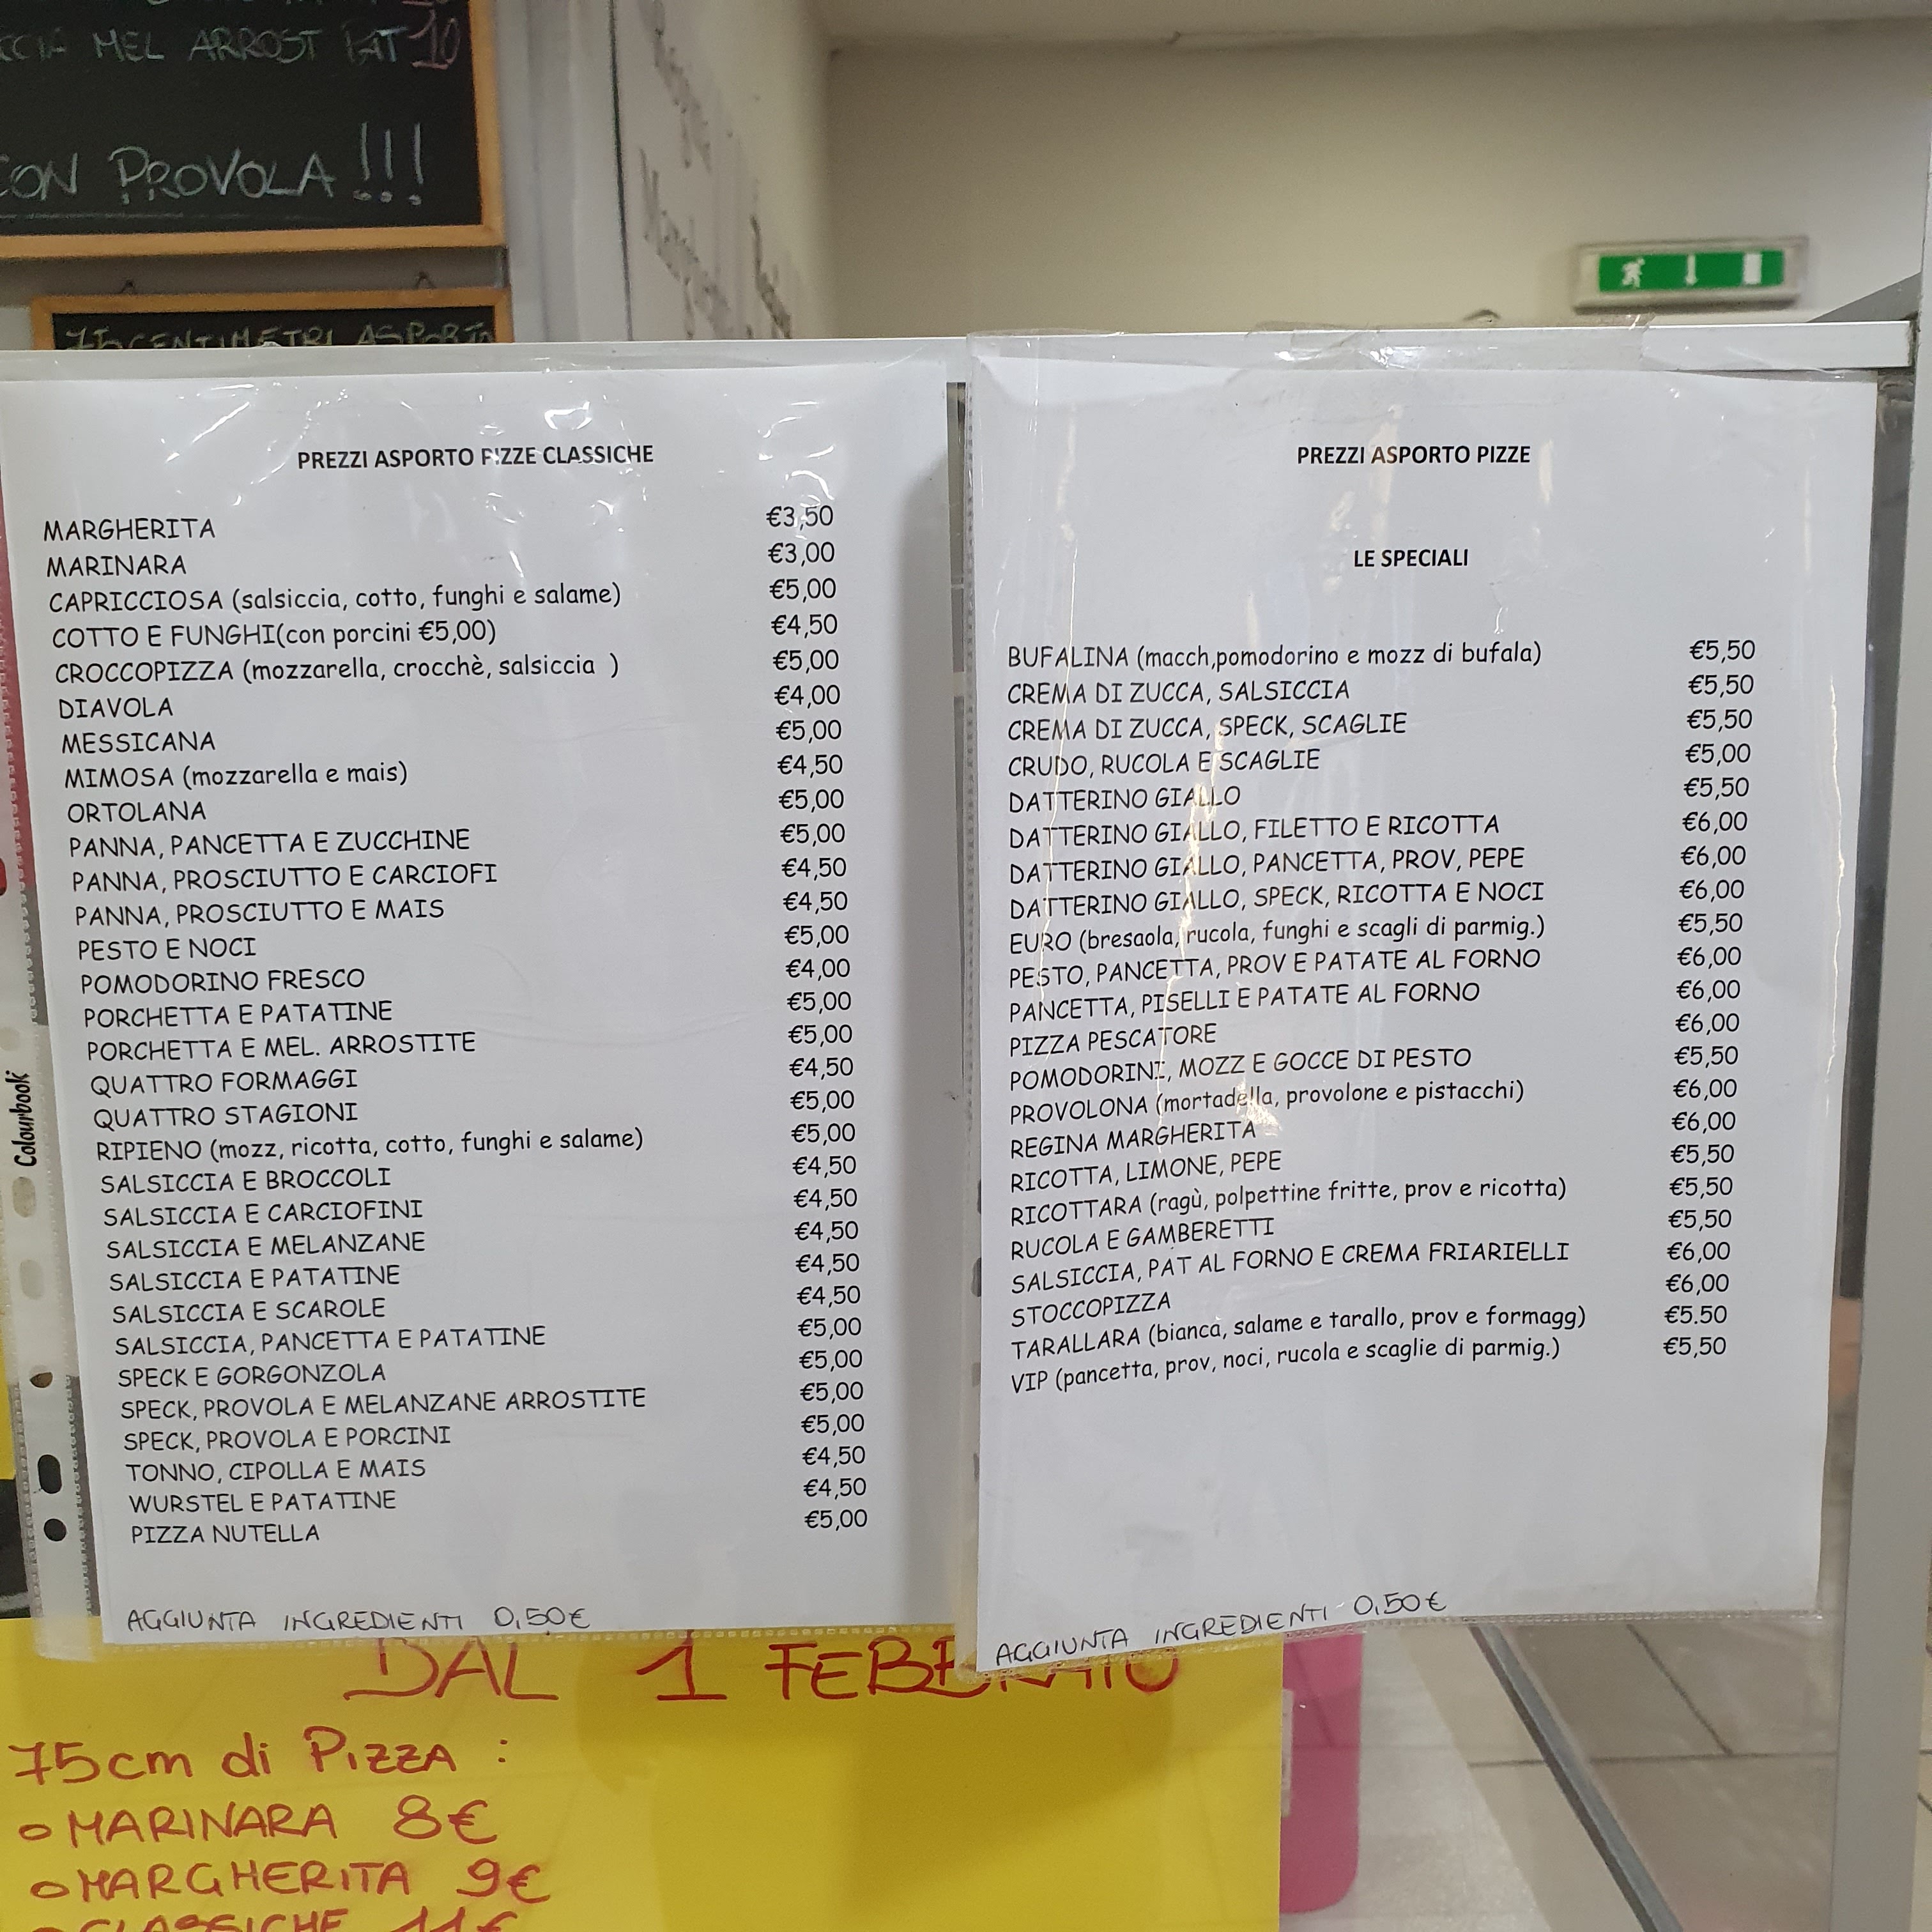 MEL ARROST PAT 10
CON PROVOLA !!!
75 CENTIMETRI ASPORTO
PREZZI ASPORTO PIZZE CLASSICHE
MARGHERITA €3,50
MARINARA €3,00
CAPRICCIOSA (salsiccia, cotto, funghi e salame) €5,00
COTTO E FUNGHI(con porcini €5,00) €4,50
CROCCOPIZZA (mozzarella, crocchè, salsiccia ) €5,00
DIAVOLA €4,00
MESSICANA €5,00
MIMOSA (mozzarella e mais) €4,50
ORTOLANA €5,00
PANNA, PANCETTA E ZUCCHINE €5,00
PANNA, PROSCIUTTO E CARCIOFI €4,50
PANNA, PROSCIUTTO E MAIS €4,50
PESTO E NOCI €5,00
POMODORINO FRESCO €4,00
PORCHETTA E PATATINE €5,00
PORCHETTA E MEL. ARROSTITE €5,00
QUATTRO FORMAGGI €4,50
QUATTRO STAGIONI €5,00
RIPIENO (mozz, ricotta, cotto, funghi e salame) €5,00
SALSICCIA E BROCCOLI €4,50
SALSICCIA E CARCIOFINI €4,50
SALSICCIA E MELANZANE €4,50
SALSICCIA E PATATINE €4,50
SALSICCIA E SCAROLE €4,50
SALSICCIA, PANCETTA E PATATINE €5,00
SPECK E GORGONZOLA €5,00
SPECK, PROVOLA E MELANZANE ARROSTITE €5,00
SPECK, PROVOLA E PORCINI €5,00
TONNO, CIPOLLA E MAIS €4,50
WURSTEL E PATATINE €4,50
PIZZA NUTELLA €5,00
AGGIUNTA INGREDIENTI 0,50€
Colourbook
PREZZI ASPORTO PIZZE
LE SPECIALI
BUFALINA (macch,pomodorino e mozz di bufala) €5,50
CREMA DI ZUCCA, SALSICCIA €5,50
CREMA DI ZUCCA, SPECK, SCAGLIE €5,50
CRUDO, RUCOLA E SCAGLIE €5,00
DATTERINO GIALLO €5,50
DATTERINO GIALLO, FILETTO E RICOTTA €6,00
DATTERINO GIALLO, PANCETTA, PROV, PEPE €6,00
DATTERINO GIALLO, SPECK, RICOTTA E NOCI €6,00
EURO (bresaola, rucola, funghi e scagli di parmig.) €5,50
PESTO, PANCETTA, PROV E PATATE AL FORNO €6,00
PANCETTA, PISELLI E PATATE AL FORNO €6,00
PIZZA PESCATORE €6,00
POMODORINI, MOZZ E GOCCE DI PESTO €5,50
PROVOLONA (mortadella, provolone e pistacchi) €6,00
REGINA MARGHERITA €6,00
RICOTTA, LIMONE, PEPE €5,50
RICOTTARA (ragù, polpettine fritte, prov e ricotta) €5,50
RUCOLA E GAMBERETTI €5,50
SALSICCIA, PAT AL FORNO E CREMA FRIARIELLI €6,00
STOCCOPIZZA €6,00
TARALLARA (bianca, salame e tarallo, prov e formagg) €5.50
VIP (pancetta, prov, noci, rucola e scaglie di parmig.) €5,50
AGGIUNTA INGREDIENTI 0,50€
DAL 1 FEBBRAIO
75cm di PIZZA :
MARINARA 8€
MARGHERITA 9€
CLASSICHE 11€